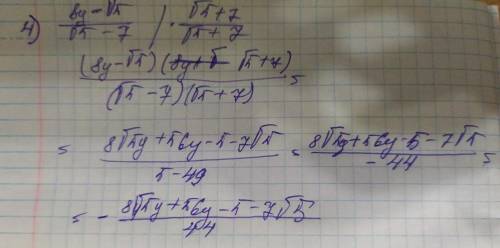 4) (8y-√5)/(√5-7) | · (√5+7)/(√5+7)
((8y-√5)(√5+7))/((√5-7)(√5+7)) =
= (8√5y+56y-5-7√5)/(5-49) = (8√5y+56y-5-7√5)/(-44) =
= - (8√5y+56y-5-7√5)/44